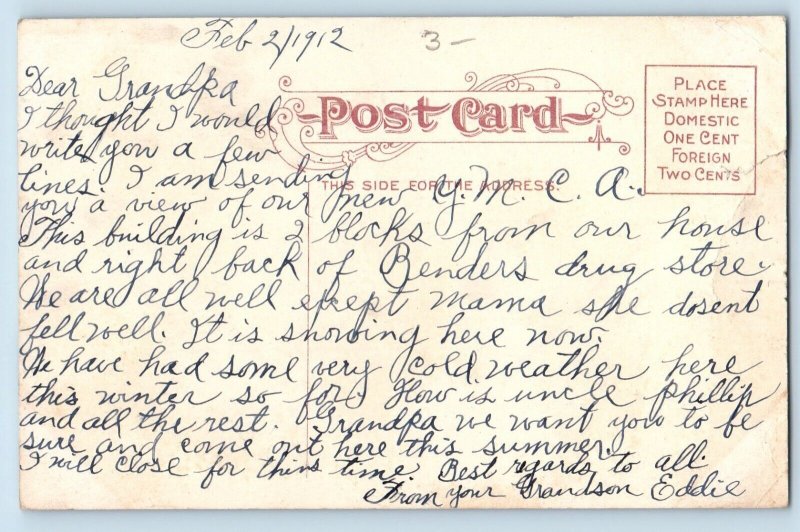 Feb 2/1912
3-
Dear Grandpa
I thought I would
write you a few
lines. I am sending
you a view of our new Y. M. C. A.
This building is 2 blocks from our house
and right back of Benders drug store.
We are all well except mama she dosent
fell well. It is snowing here now.
We have had some very cold weather here
this winter so for. How is uncle phillip
and all the rest. Grandpa we want you to be
sure and come out here this summer.
I will close for this time Best regards to all.
From your Grandson Eddie
Post Card
THIS SIDE FOR THE ADDRESS.
PLACE
STAMP HERE
DOMESTIC
ONE CENT
FOREIGN
TWO CENTS